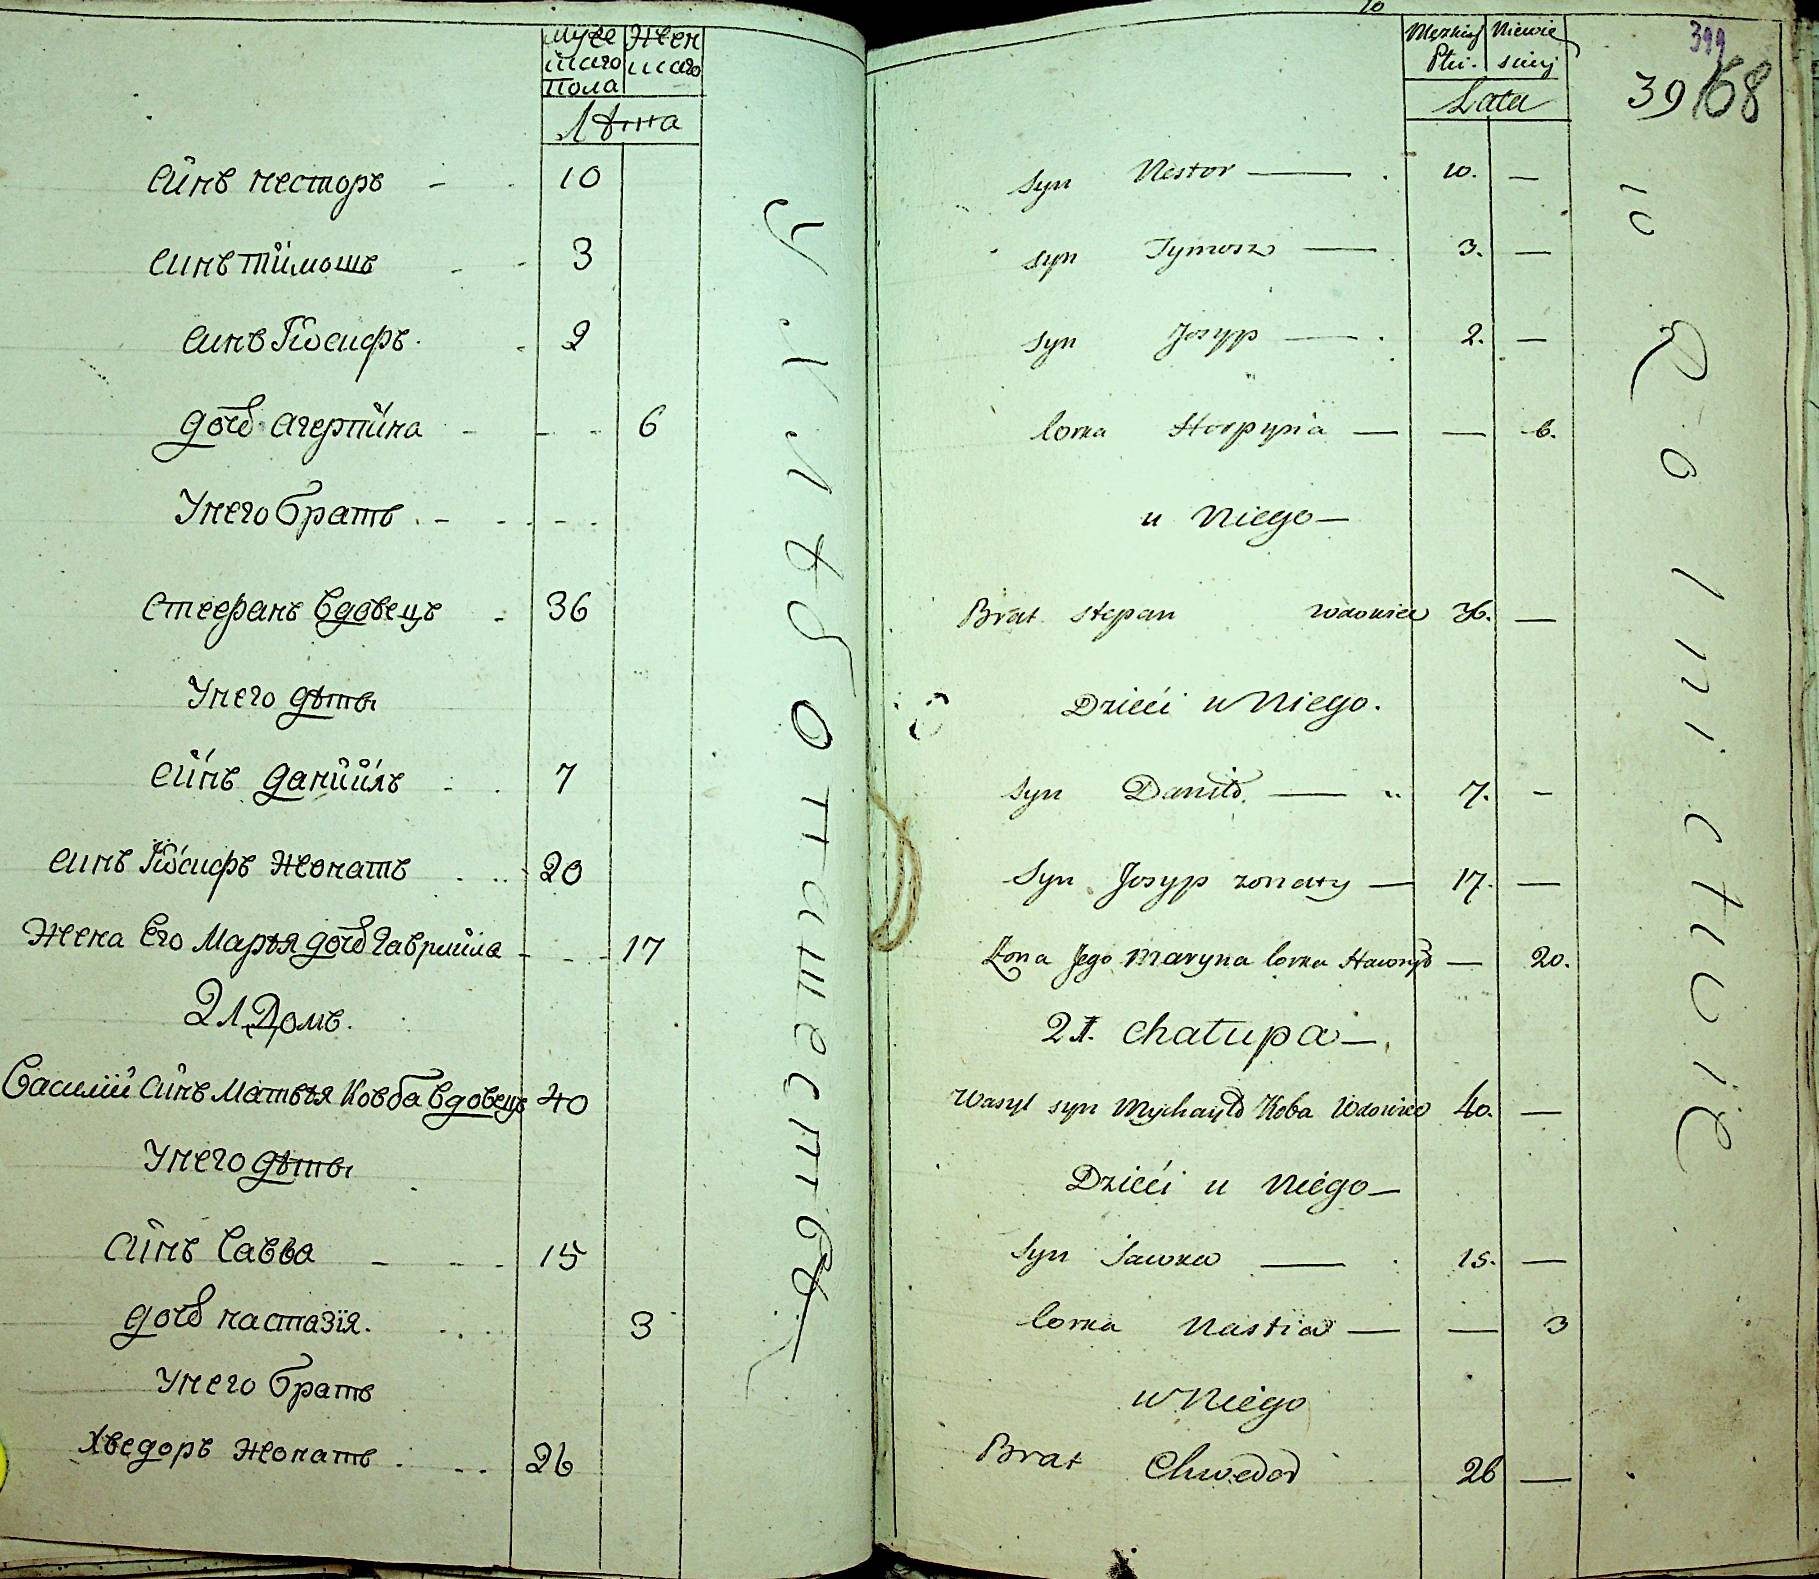 Муже Жен
скаго скаго
Пола
Лѣта
Синъ несторъ - 10
Синъ тимошъ - 3
Синъ Іосифъ 2
дочь агерпина - - - 6
Унего братъ - - - -
Стефанъ вдовецъ 36
Унего дѣти
Синъ даниилъ 7
Синъ Іосифъ Жонатъ 20
Жена Его Марья дочь гавриила - - - 17
21 Домъ.
Василий Синъ Матвѣя Ковба Вдовецъ 40
Унего дѣти
Синъ Савва - - - 15
дочь настазія. 3
Унего братъ
Хведоръ Жонатъ 26
Y х л ѣ б о п а ш е с т в ѣ
10
Męzkiej Niewie
Płci. sciej
Lata
399
39 168
Syn Nestor — 10. —
syn Tymosz — 3. —
syn Josyp — 2. —
Corka Horpyna — — 6.
u Niego —
Brat Stepan wdowiec 36. —
Dzieći u Niego.
Syn Daniło — 7. —
Syn Josyp zonaty — 17. —
Żona Jego Maryna Corka Hawryło — 20.
21. Chałupa —
Wasyl syn Mychayło Koba Wdowiec 40. —
Dzieći u Niego —
Syn Sawka — 15. —
Corka Nastia — — 3
u Niego
Brat Chwedor 26 —
w Rolnictwie